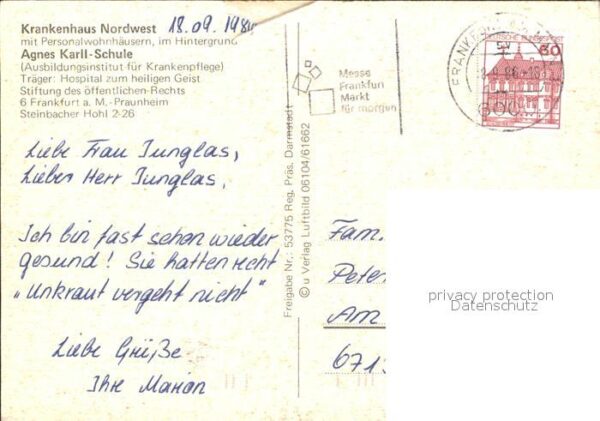 Krankenhaus Nordwest
18.09.198
mit Personalwohnhäusern, im Hintergrund
Agnes Karll-Schule
(Ausbildungsinstitut für Krankenpflege)
Träger: Hospital zum heiligen Geist
Stiftung des öffentlichen-Rechts
6 Frankfurt a. M.-Praunheim
Steinbacher Hohl 2-26
Messe
Frankfurt
Markt
für morgen
FRANKFURT
DEUTSCHE BUNDESPOST
60
Liebe Frau Junglas,
Lieber Herr Junglas,
Ich bin fast schon wieder
gesund! Sie hatten recht
"Unkraut vergeht nicht"
Liebe Grüße
Ihre Marion
Freigabe Nr.: 53775 Reg. Präs. Darmstadt
© u Verlag Luftbild 06104/61662
Fam.
Peter
Am
671
privacy protection
Datenschutz